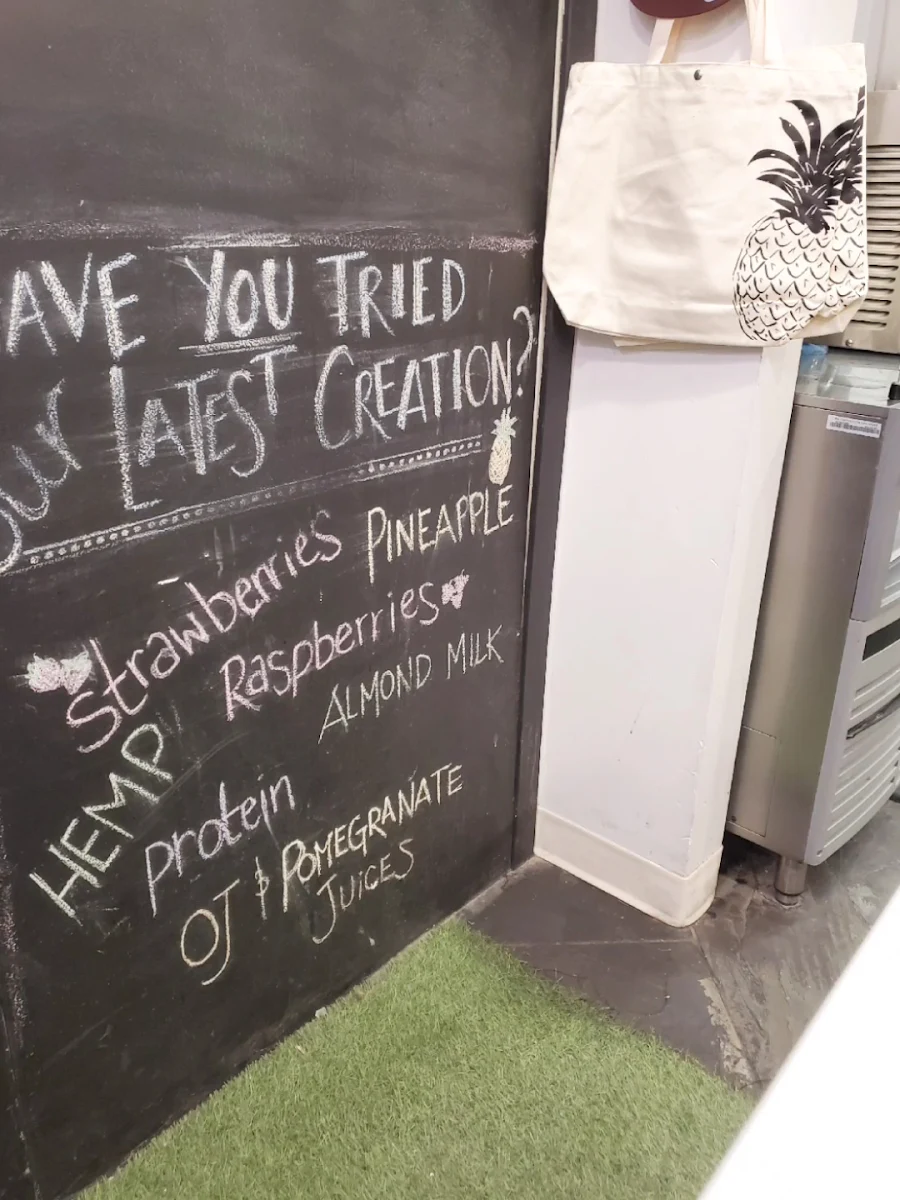 AVE YOU TRIED
our LATEST CREATION?
Strawberries PINEAPPLE
Raspberries
ALMOND MILK
HEMP
protein
OJ & POMEGRANATE
JUICES